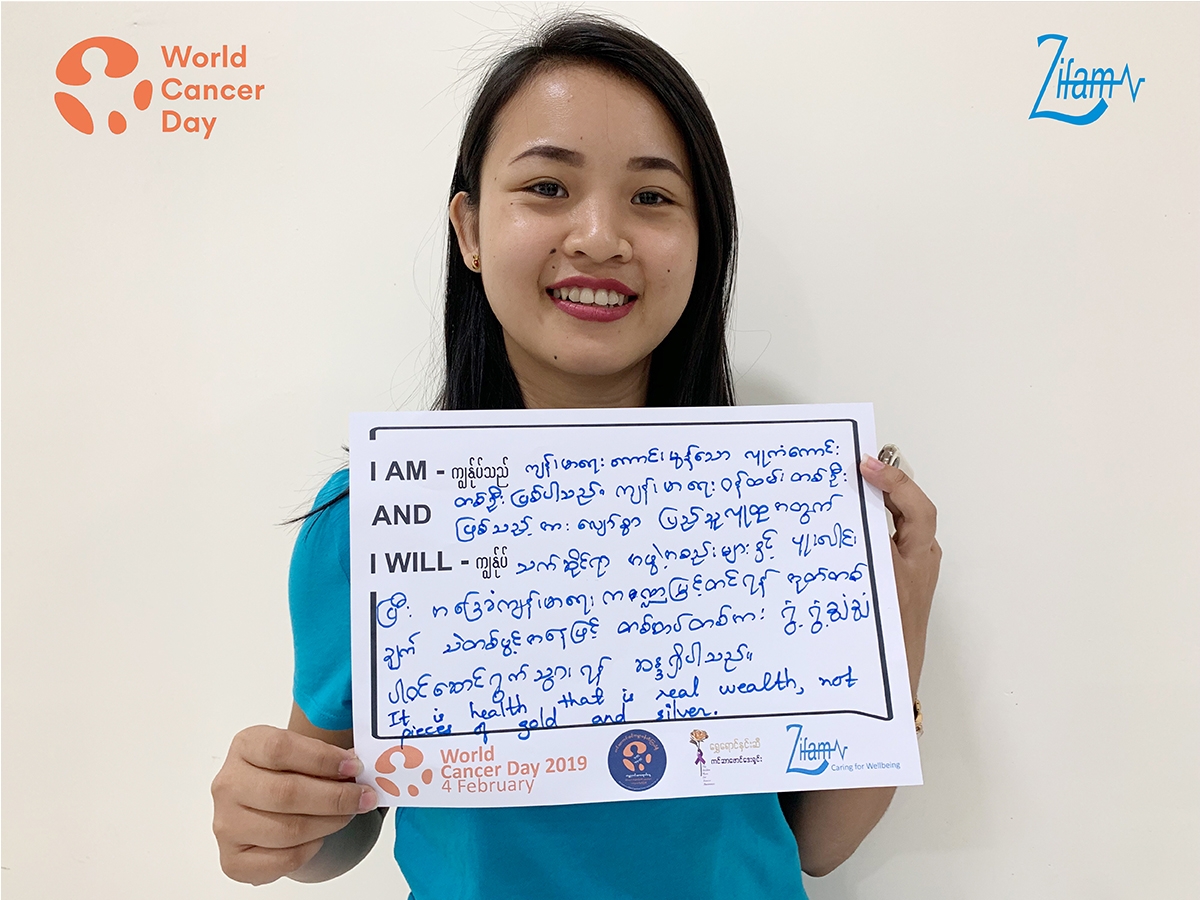 World
Cancer
Day
Zifam
I AM - ကျွန်ုပ်သည် ကျန်းမာရေး ကောင်းမွန်သော လူ့
တစ်ဦး ဖြစ်ပါသည်။ ကျန်းမာရေး ဝန်ထမ်း တစ်ဦး
AND ဖြစ်သည့် အား လျော်စွာ ပြည်သူလူထု အတွက်
I WILL - ကျွန်ုပ် သက်ဆိုင်ရာ အဖွဲ့အစည်းများ နှင့် ပူးပေါင်း
ပြီး အခြေခံကျန်းမာရေး ကဏ္ဍမြှင့်တင်ရန် အုတ်တစ်
ချပ် သဲတစ်ပွင့် အနေဖြင့် တစ်တပ်တစ်အား
ပါဝင်ဆောင်ရွက်သွားရန် ဆန္ဒရှိပါသည်။
It is health that is real wealth, not
pieces of gold and silver.
World
Cancer Day 2019
4 February
ရွှေရောင်နှင်းဆီ
ကင်ဆာဖောင်ဒေးရှင်း
Zifam
Caring for Wellbeing